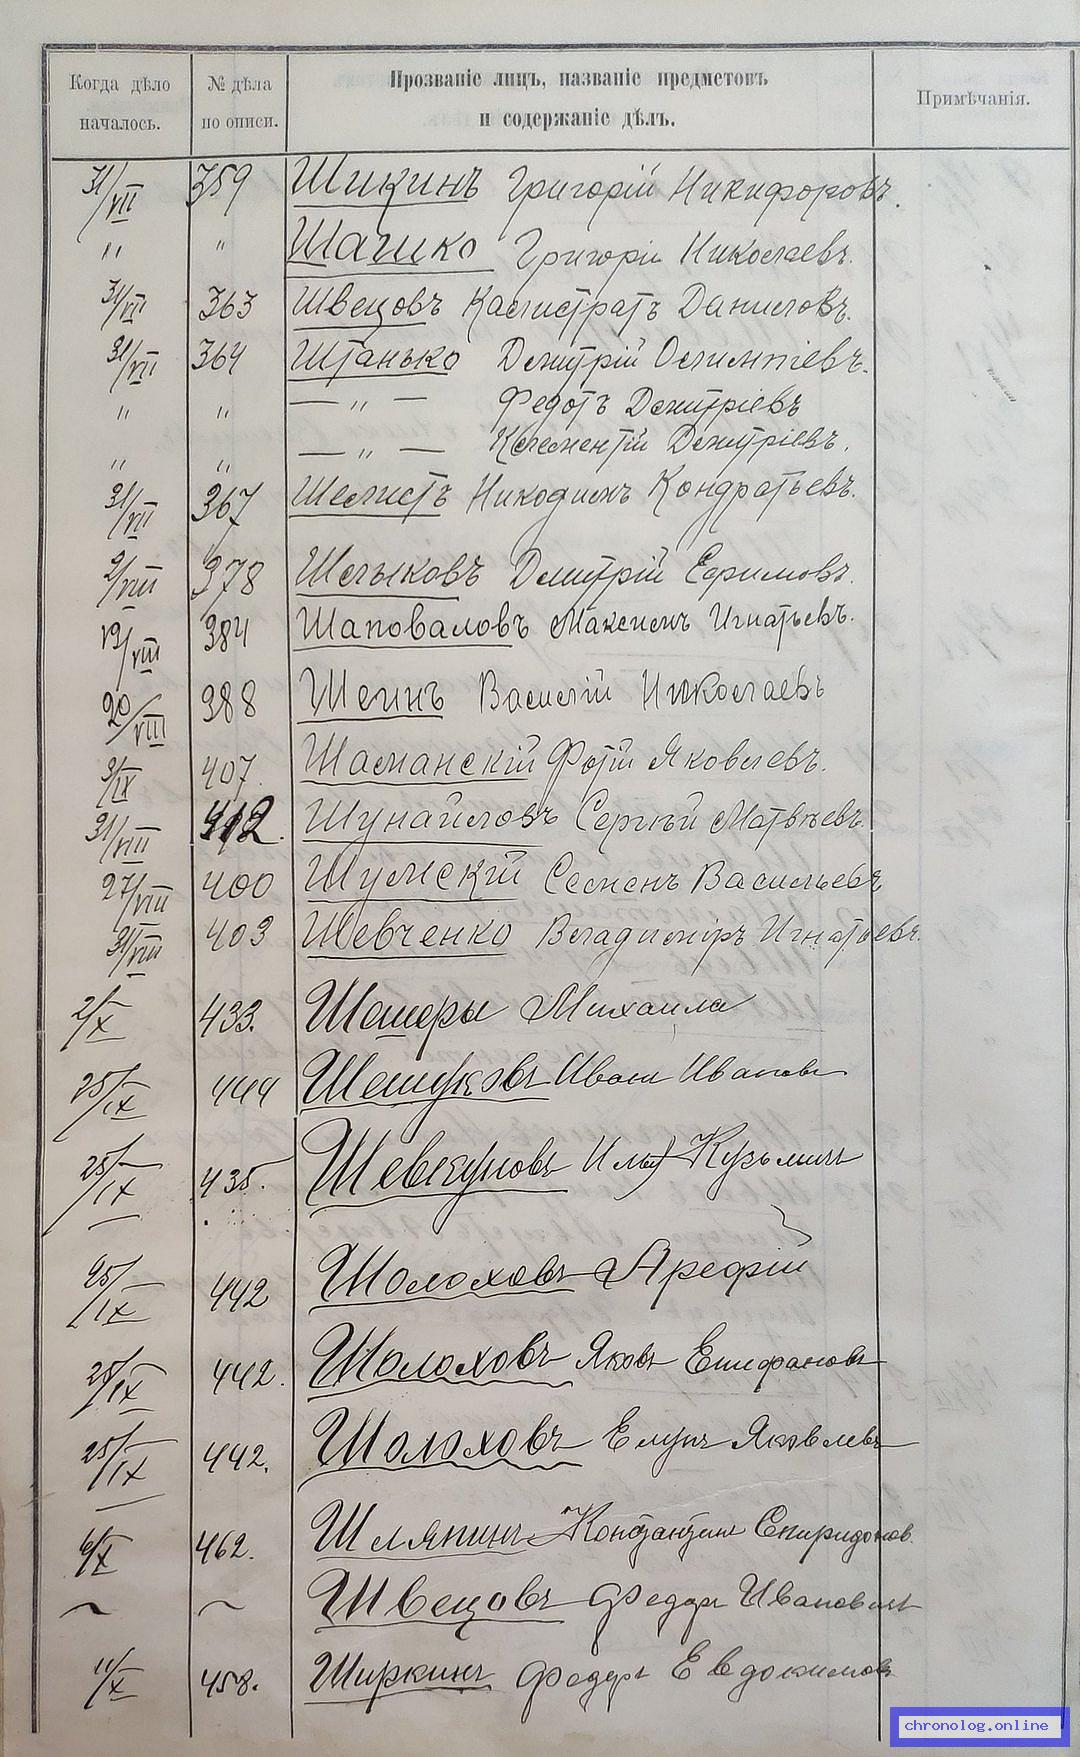 Когда дѣло началось. № дѣла по описи. Прозваніе лицъ, названіе предметовъ и содержаніе дѣлъ. Примѣчанія.
31/VII 359 Шикинъ Григорій Никифоровъ.
" " Шашко Григорій Николаевъ.
31/VII 363 Швецовъ Калистратъ Даниловъ.
31/VII 364 Штанько Дмитрій Олимпіевъ.
" " — " — Федотъ Дмитріевъ
" " — " — Климентій Дмитріевъ.
31/VII 367 Шелистъ Никодимъ Кондратьевъ.
2/VIII 378 Шлыковъ Дмитрій Ефимовъ.
19/VIII 384 Шаповаловъ Максимъ Игнатьевъ.
20/VIII 388 Шеинъ Василій Николаевъ
9/IX 407. Шаманскій Фотій Яковлевъ.
31/VIII 412. Шунайловъ Сергѣй Матвѣевъ.
27/VIII 400 Шумскій Семенъ Васильевъ
31/VIII 403 Шевченко Владиміръ Игнатьевъ.
2/X 433. Михаила
25/IX 444 Иван Иванов
25/IX 435. Шевкуновъ Илья Кузьмин
25/IX 442 Шолоховъ Арефій
25/IX 442. Шолоховъ Яковъ Епифановъ
25/IX 442. Шолоховъ Яковлевъ
6/X 462. Шляпинъ Константинъ Спиридонов.
~ ~ Швецовъ Федоръ Ивановичъ
11/X 458. Ширкинъ Федоръ Евдокимовъ
chronolog.online